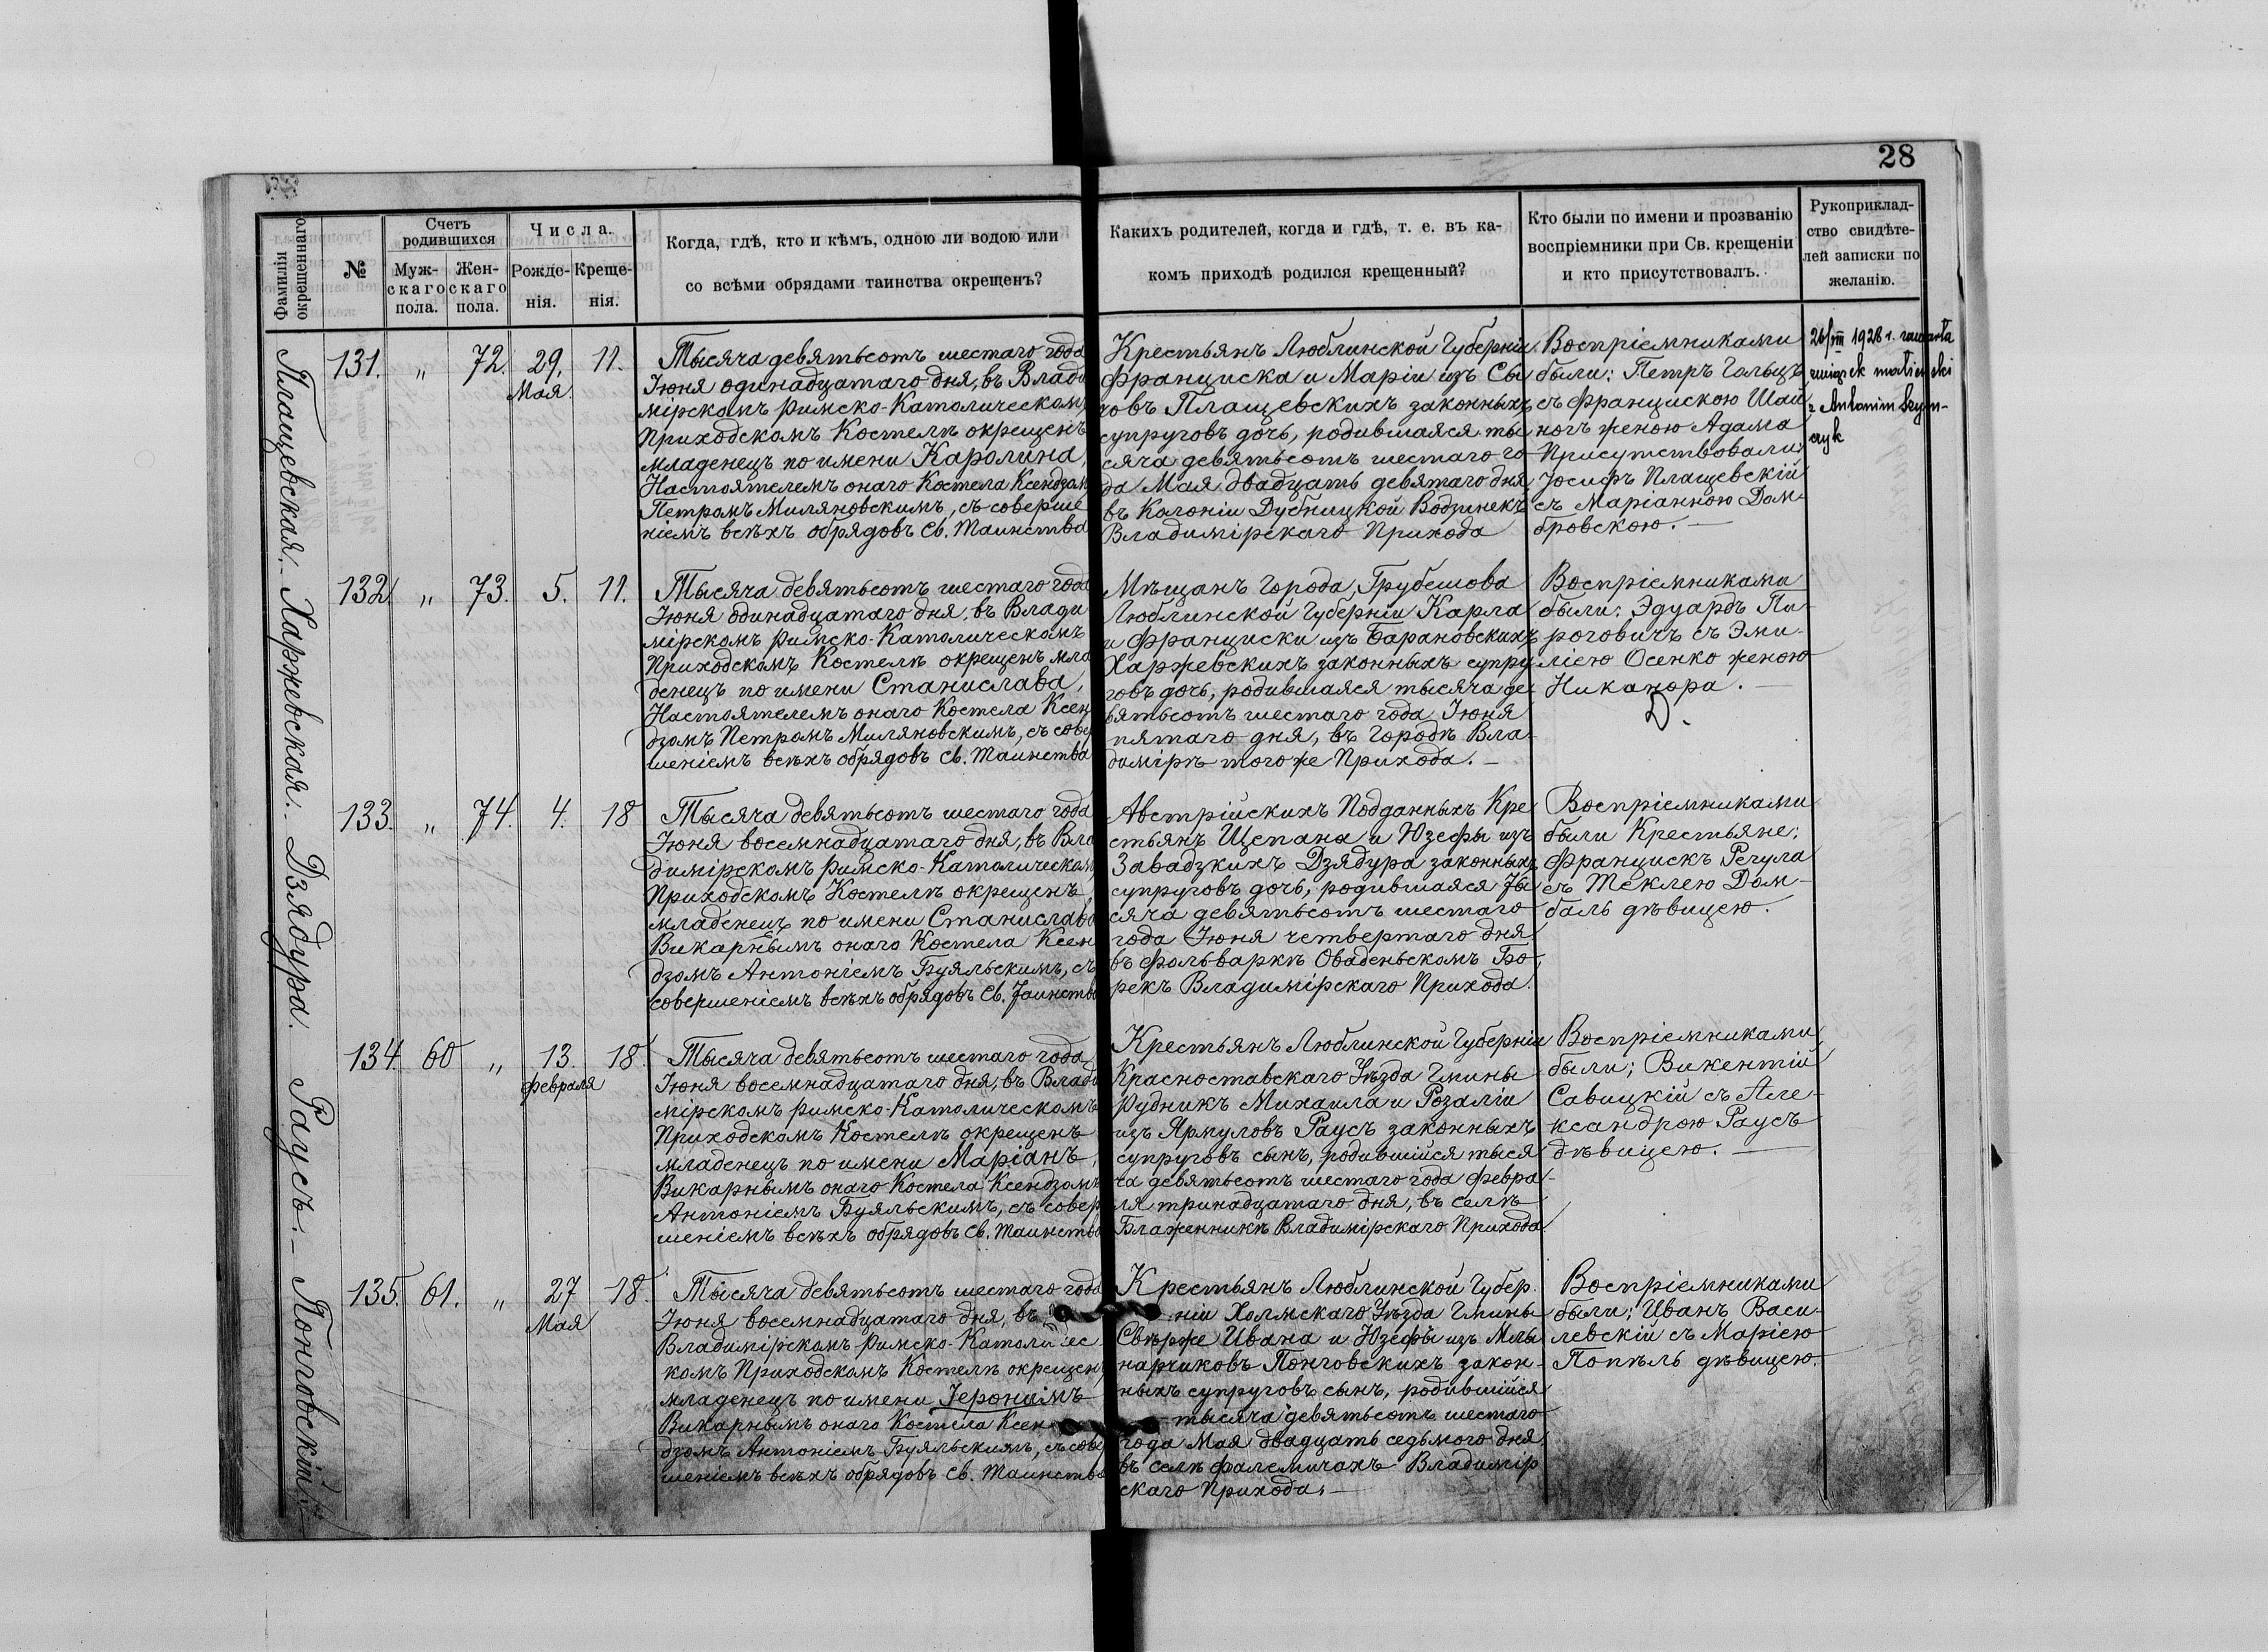 28
Фамилія окрещеннаго
№
Счетъ родившихся
Муж-
скаго
пола.
Жен-
скаго
пола.
Числа.
Рожде-
нія.
Креще-
нія.
Когда, гдѣ, кто и кѣмъ, одною ли водою или
со всѣми обрядами таинства окрещенъ?
Какихъ родителей, когда и гдѣ, т. е. въ ка-
комъ приходѣ родился крещенный?
Кто были по имени и прозванію
воспріемники при Св. крещеніи
и кто присутствовалъ.
Рукоприклад-
ство свидѣте-
лей записки по
желанію.
Плащевская.
131. „ 72. 29. 11.
Мая
Тысяча девятьсотъ шестаго года
Іюня одинадцатаго дня, въ Влади
мірскомъ Римско-Католическомъ
Приходскомъ Костелѣ окрещенъ
младенецъ по имени Каролина,
Настоятелемъ онаго Костела Ксендзом
Петромъ Миляновскимъ, съ соверше
ніемъ всѣхъ обрядовъ Св. Таинства
Крестьянъ Люблинской Губерніи
Франциска и Маріи изъ Сы
ковъ Плащевскихъ законныхъ
супруговъ дочь, родившаяся ты
сяча девятьсотъ шестаго го
да Мая двадцать девятаго дня
въ Колоніи Дубницкой Водзинекъ
Владимірскаго Прихода
Воспріемниками
были: Петръ Гольцъ
съ Францискою Шай
ногъ женою Адама
Присутствовали:
Іосифъ Плащевскій
съ Маріанною Дом-
бровскою.
26/VIII 1928 r. zawarła
związek małżeński
z Antonim Szym-
czyk
Харжевская.
132. „ 73. 5. 11.
Тысяча девятьсотъ шестаго года
Іюня одинадцатаго дня, въ Влади
мірскомъ Римско-Католическомъ
Приходскомъ Костелѣ окрещенъ мла
денецъ по имени Станислава,
Настоятелемъ онаго Костела Ксен
дзомъ Петромъ Миляновскимъ, съ сове
шеніемъ всѣхъ обрядовъ Св. Таинства
Мѣщанъ Города Грубешова
Люблинской Губерніи Карла
и Франциски изъ Барановскихъ
Харжевскихъ законныхъ супру
говъ дочь, родившаяся тысяча де
вятьсотъ шестаго года Іюня
пятаго дня, въ Городѣ Вла-
димірѣ тогоже Прихода.
Воспріемниками
были: Эдуардъ Пи-
роговичъ съ Эми-
ліею Осенко женою
Никанора.
D.
Дзядура.
133. „ 74. 4. 18
Тысяча девятьсотъ шестаго года
Іюня восемнадцатаго дня, въ Вла
димірскомъ Римско-Католическом
Приходскомъ Костелѣ окрещенъ
младенецъ по имени Станислава
Викарнымъ онаго Костела Ксен
дзомъ Антоніемъ Буяльскимъ, съ
совершеніемъ всѣхъ обрядовъ Св. Таинства
Австрійскихъ Подданныхъ Кре
стьянъ Щепана и Юзефы изъ
Завадзкихъ Дзядура законныхъ
супруговъ дочь, родившаяся Ты
сяча девятьсотъ шестаго
года Іюня четвертаго дня
въ фольваркѣ Оваденьскомъ Бо-
рекъ Владимірскаго Прихода.
Воспріемниками
были Крестьяне:
Францискъ Регула
съ Теклею Дом-
баль дѣвицею.
Раусъ.
134. 60 „ 13. 18.
Февраля
Тысяча девятьсотъ шестаго года
Іюня восемнадцатаго дня, въ Влади
мірскомъ Римско-Католическомъ
Приходскомъ Костелѣ окрещенъ
младенецъ по имени Маріанъ,
Викарнымъ онаго Костела Ксендзомъ
Антоніемъ Буяльскимъ, съ совер
шеніемъ всѣхъ обрядовъ Св. Таинства
Крестьянъ Люблинской Губерніи
Красноставскаго Уѣзда Гмины
Рудникъ Михаила и Розаліи
изъ Ярмуловъ Раусъ законныхъ
супруговъ сынъ, родившійся тыся
ча девятьсотъ шестаго года Февра-
ля тринадцатаго дня, въ селѣ
Блаженникѣ Владимірскаго Прихода
Воспріемниками
были; Викентій
Савицкій съ Але-
ксандрою Раусъ
дѣвицею.
Понговскій.
135. 61. „ 27 18.
Мая
Тысяча девятьсотъ шестаго года
Іюня восемнадцатаго дня, въ
Владимірскомъ Римско-Католичес
комъ Приходскомъ Костелѣ окрещен
младенецъ по имени Іеронимъ
Викарнымъ онаго Костела Ксен
дзомъ Антоніемъ Буяльскимъ, съ сове
шеніемъ всѣхъ обрядовъ Св. Таинства
Крестьянъ Люблинской Губер.
ніи Холмскаго Уѣзда Гмины
Свѣрже Ивана и Юзефы изъ Млы
нарчиковъ Понговскихъ закон-
ныхъ супруговъ сынъ, родившійся
тысяча девятьсотъ шестаго
года Мая двадцать седьмого дня
въ селѣ Фалемичахъ Владимір
скаго Прихода.
Воспріемниками
были; Иванъ Васи-
левскій съ Маріею
Попѣль дѣвицею.